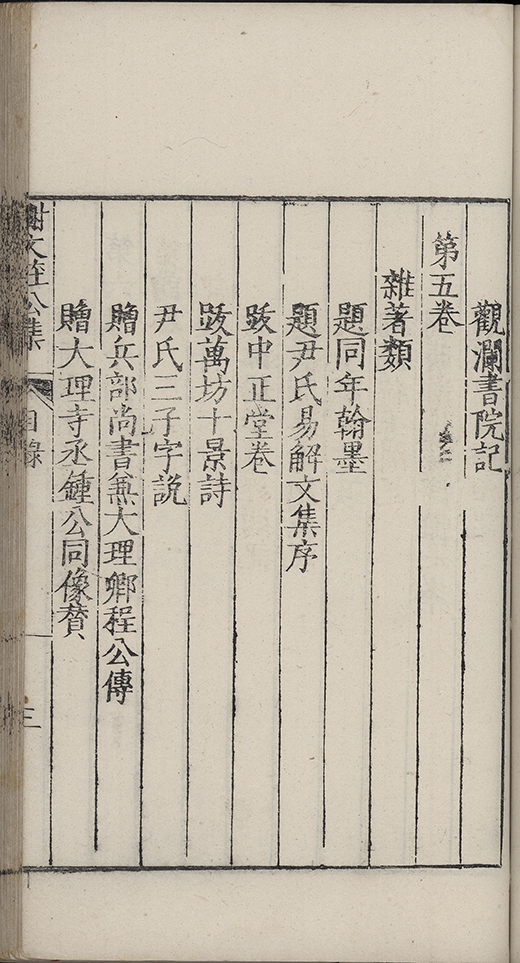 觀瀾書院記
第五卷
雜著類
題同年翰墨
題尹氏易解文集序
跋中正堂卷
跋萬坊十景詩
尹氏三子字説
贈兵部尚書兼大理卿程公傳
贈大理寺丞鍾公同像贊
謝文莊公集 目錄 三